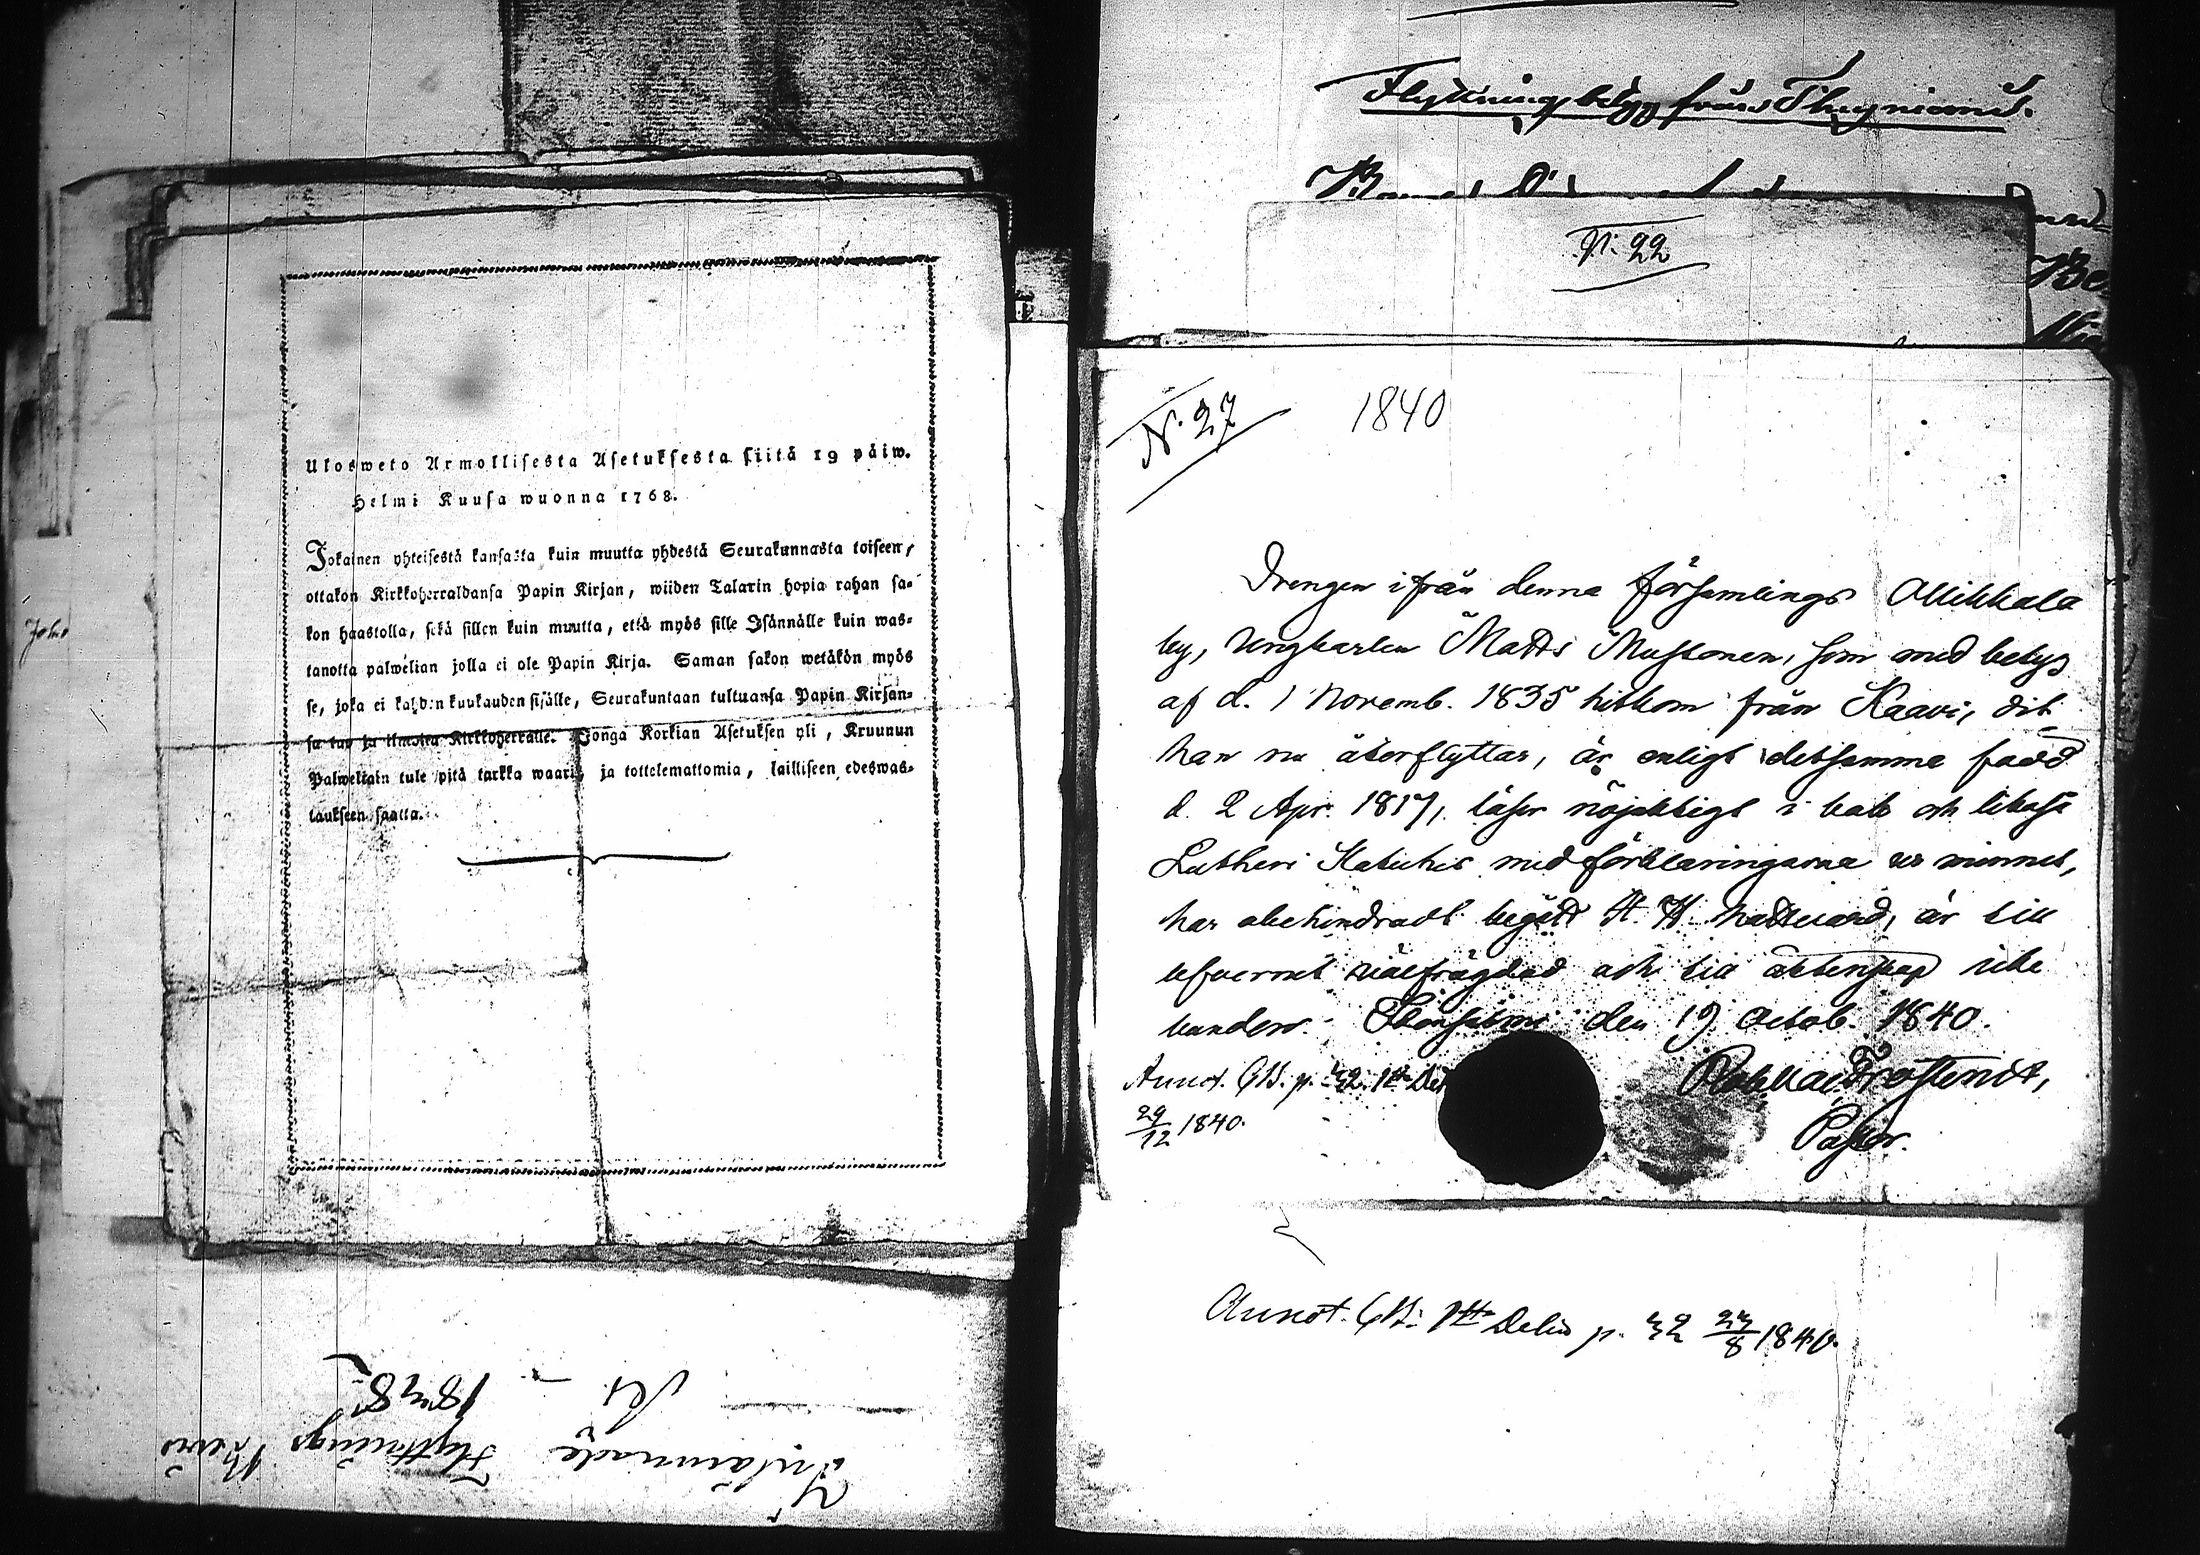 Ulosweto Armollisesta Asetuksesta siitä 19 päiw.
Helmi Kuusa wuonna 1768.
Jokainen yhteisestä kansasta kuin muutta yhdestä Seurakunnasta toiseen,
ottakon Kirkkoherraldansa Papin Kirjan, wiiden Talarin hopia rahan sa-
kon haastolla, sekä sillen kuin muutta, että myös sille Isännälle kuin was-
tanotta palwelian jolla ei ole Papin Kirja. Saman sakon wetäkön myös
se, joka ei kahden kuukauden sisälle, Seurakuntaan tultuansa Papin Kirjan-
sa tuo ja ilmoita Kirkkoherralle. Jonga Korkian Asetuksen yli, Kruunun
Palweliain tule pitä tarkka waari, ja tottelemattomia, lailliseen edeswas-
taukseen saatta.
Inlämnade Flyttnings Bevis
1848
Joh
Flyttningsbetyg från
N. 22
N. 27 1840
Drengen ifrån denna församlings Mikkala
by, Ungkarlen Matts Mustonen, som med betyg
af d. 1 Novemb. 1835 hitkom från Kaavi, dit
han nu återflyttar, är enligt detsamma född
d. 2 Apr. 1817, läser nöjaktigt i bok och likaså
Lutheri Katiches med förklaringarna ur minnet,
har obehindradt begått H. H. Nattvard, är till
lefvernet välfrägdad och till äktenskap icke
bunden. den 19 Octob. 1840.
Pastor.
Annot. CB. p. 32. 1sta Del
29/12 1840.
Annot. CB: 1sta Delen p. 32 27/8 1840.